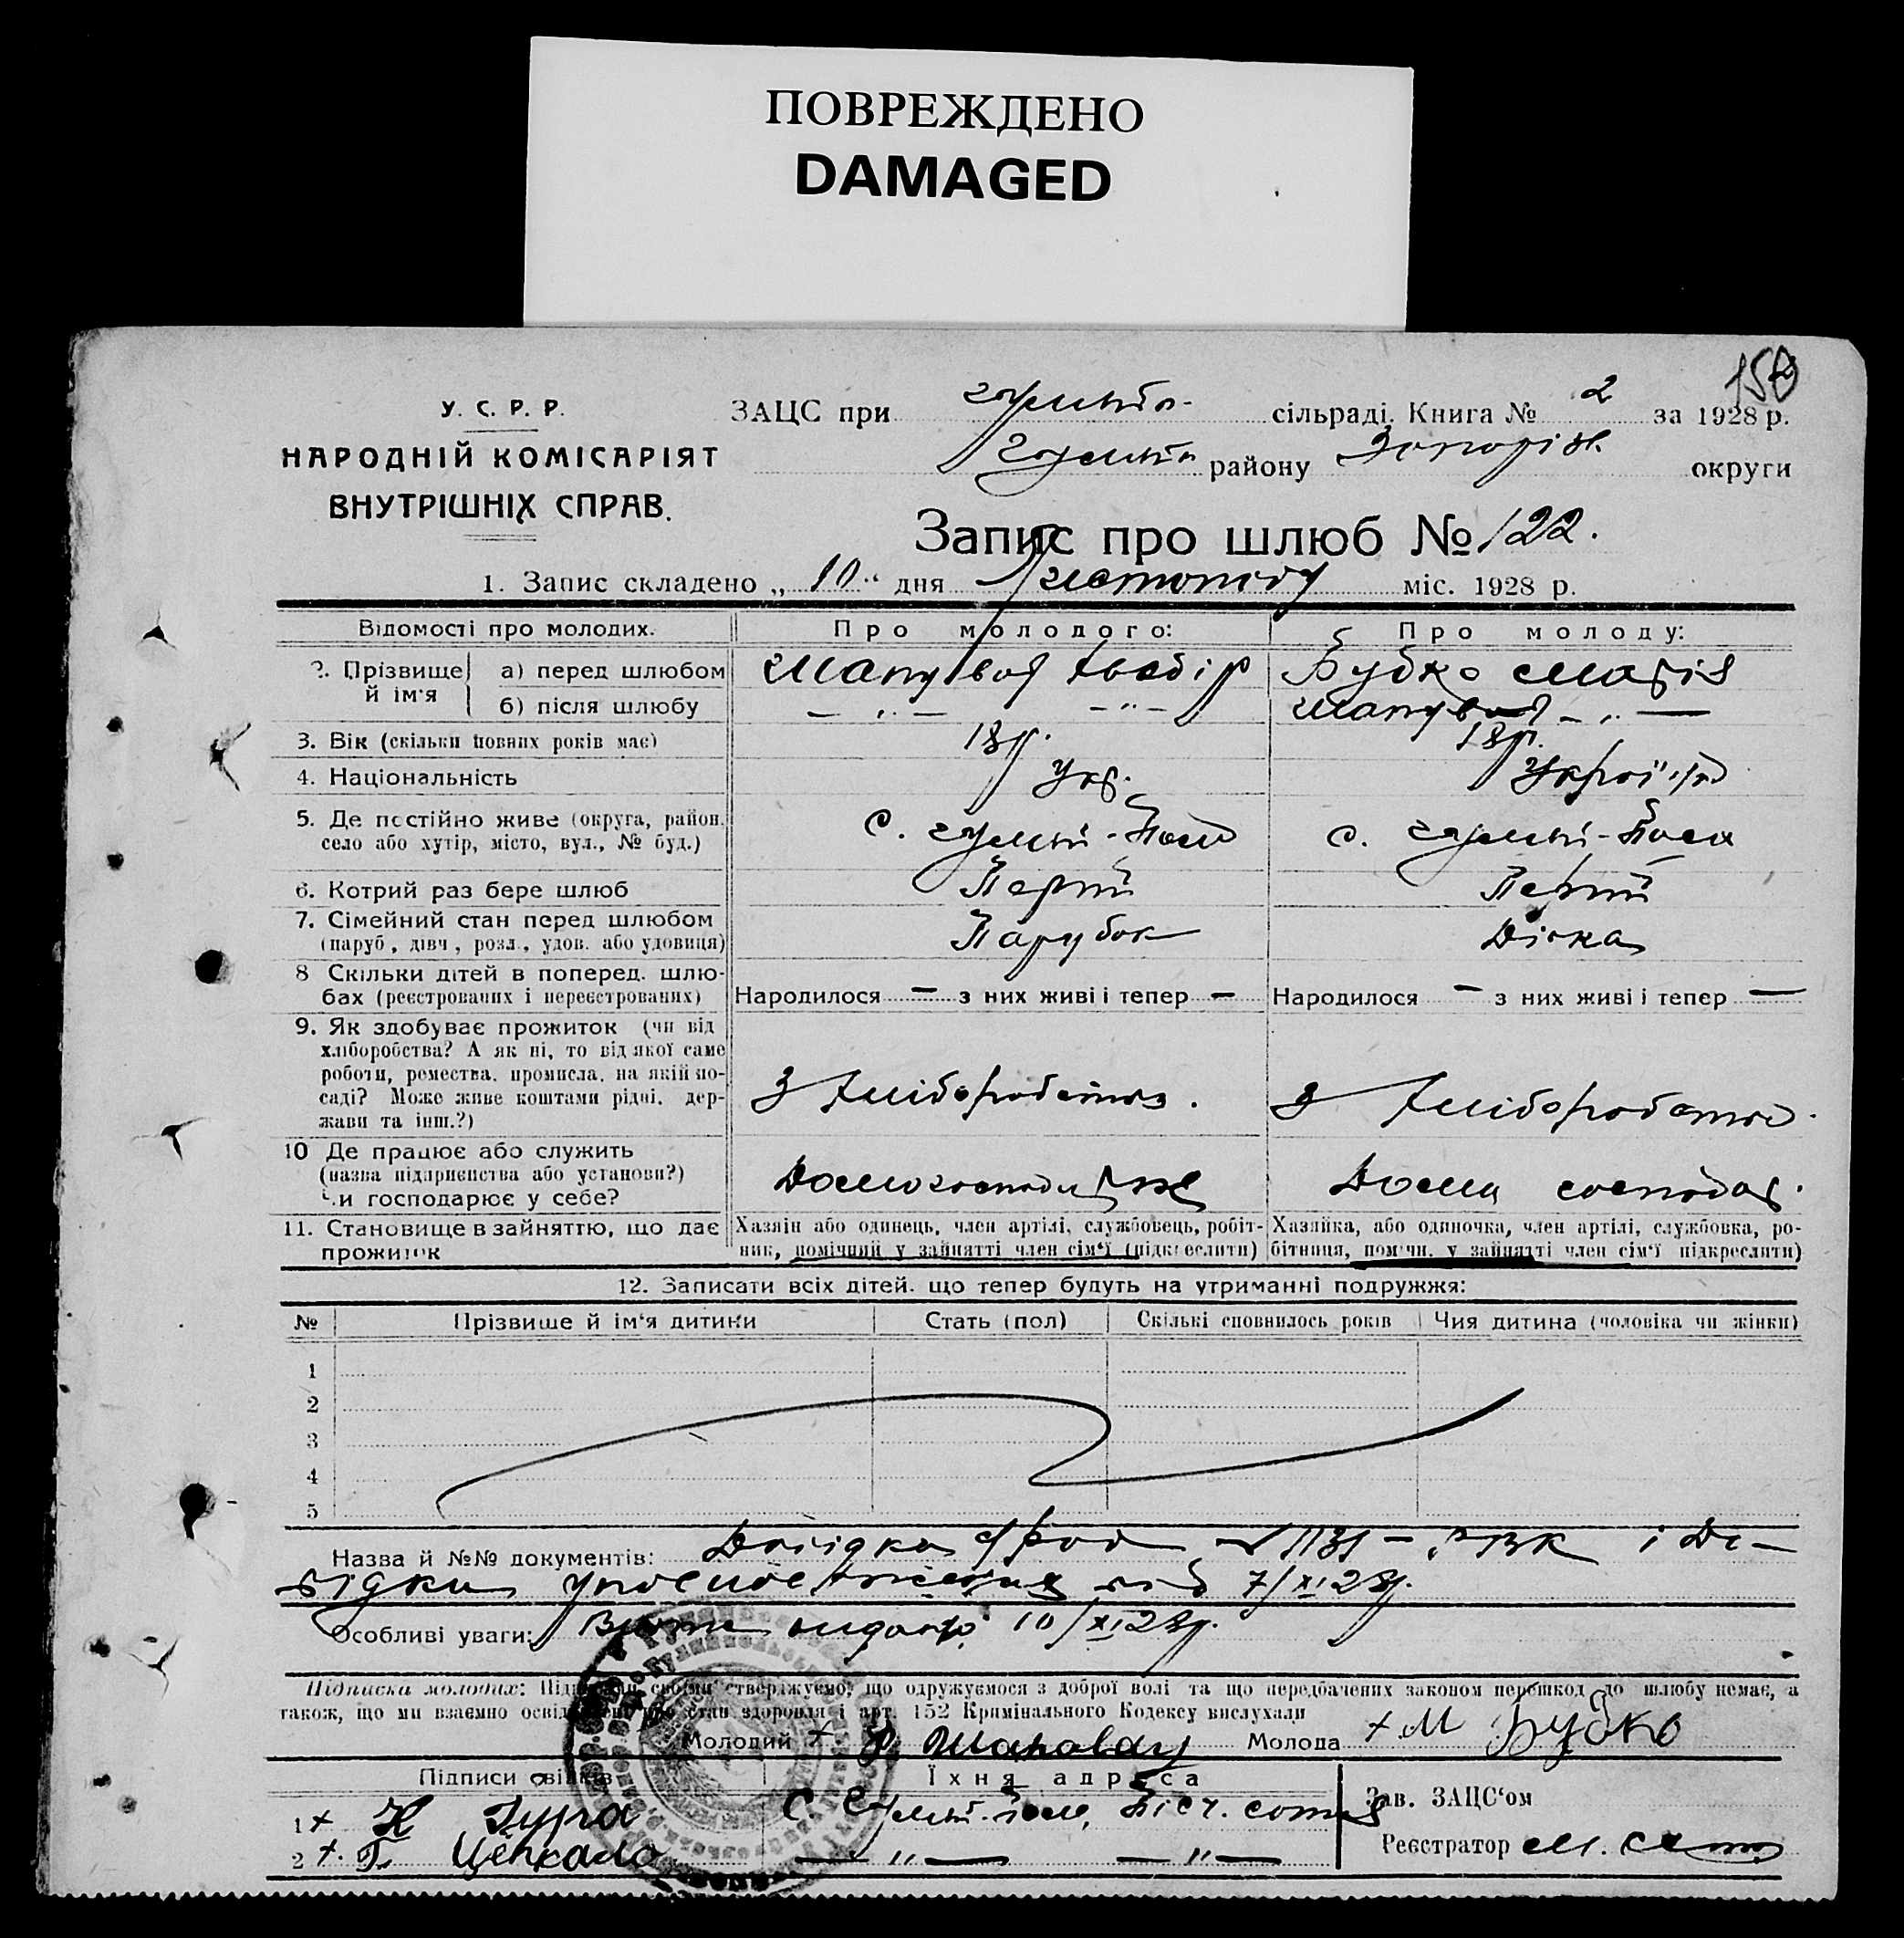 ПОВРЕЖДЕНО
DAMAGED
150
У. С. Р. Р.
НАРОДНІЙ КОМІСАРІЯТ
ВНУТРІШНІХ СПРАВ.
ЗАЦС при сільраді. Книга № 2 за 1928 р.
району Запоріж. округи
Запис про шлюб № 122.
1. Запис складено „10“ дня Листопаду міс. 1928 р.
Відомості про молодих. Про молодого: Про молоду:
2. Прізвище й ім'я
а) перед шлюбом Шапувал Будко Марія
б) після шлюбу — „ — — „ — Шапувал — „ —
3. Вік (скільки повних років має) 18 р. 18 р.
4. Національність Укр.
5. Де постійно живе (округа, район, село або хутір, місто, вул., № буд.) с. Гуляй-Поле с. Гуляй-Поле
6. Котрий раз бере шлюб Перший Перший
7. Сімейний стан перед шлюбом (паруб., дівч., розл., удов. або удовиця) Парубок Дівка
8 Скільки дітей в поперед. шлюбах (реєстрованих і нереєстрованих) Народилося — з них живі і тепер — Народилося — з них живі і тепер —
9. Як здобуває прожиток (чи від хліборобства? А як ні, то від якої саме роботи, ремества, промисла, на якій посаді? Може живе коштами рідні, держави та інш.?) З хліборобства. З хліборобства.
10 Де працює або служить (назва підприєнства або установи?) Чи господарює у себе? Дома господар.
11. Становище в зайняттю, що дає прожиток
Хазяїн або одинець, член артілі, службовець, робітник, помічний у зайнятті член сім'ї (підкреслити)
Хазяйка, або одиночка, член артілі, службовка, робітниця, помічн. у зайнятті член сім'ї підкреслити)
12. Записати всіх дітей. що тепер будуть на утриманні подружжя:
№ Прізвище й ім'я дитини Стать (пол) Скількі сповнилось років Чия дитина (чоловіка чи жінки)
1
2
3
4
5
Назва й №№ документів: Довідка РВК і До-
відки від 7/XI 28 р.
Особливі уваги: видано 10/XI 28 р.
Підписка молодих: Підписами своїми стверджуємо, що одружуємося з доброї волі та що передбачених законом перешкод до шлюбу немає, а
також, що ми взаємно освідомлені про стан здоровля і арт. 152 Кримінального Кодексу вислухали
Молодий + Шаповал Молода + М Будко
Підписи свідків Їхня адреса
1 + Н Гура с. Гуляй-Поле,
2 +. Г. — „ — — „ —
Зав. ЗАЦС'ом
Реєстратор